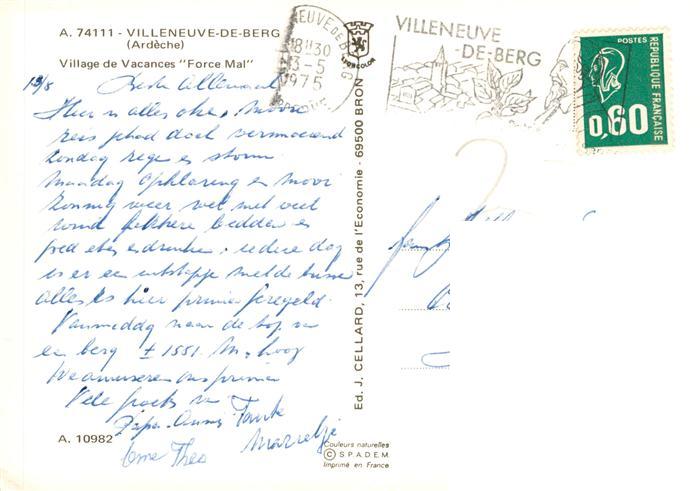 A. 74111 - VILLENEUVE-DE-BERG
(Ardèche)
Village de Vacances "Force Mal"
13/5
Beste Allemaal
Hier is alles oke, mooie
reis gehad doch vermoeiend
Zondag rege en storm
maandag opklaring en mooi
zonnig weer wel met veel
wind lekkere bedden en
goed eten en drinken. iedere dag
is er een uitstapje met de bus
alles is hier prima geregeld.
Vanmiddag naar de top van
een berg ± 1551. M. hoog
We amuseren ons prima
Vele groets van
Papa Tante
Marretje
Ome Theo
A. 10982
Ed. J. CELLARD, 13, rue de l'Economie - 69500 BRON
Couleurs naturelles
© S.P.A.D.E.M.
Imprimé en France
VILLENEUVE DE BERG
18H30
13-5
1975
VILLENEUVE
-DE-BERG
POSTES
0,60
REPUBLIQUE FRANÇAISE